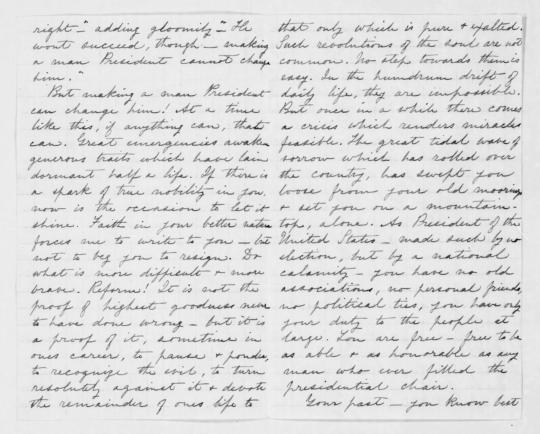 right"- adding gloomily "- He
wont succeed, though - making
a man President cannot change
him."
But making a man President
can change him! At a time
like this, if anything can, that
can. Great emergencies awaken
generous traits which have lain
dormant half a life. If there is
a spark of true nobility in you,
now is the occasion to let it
shine. Faith in your better nature
forces me to write to you - but
not to beg you to resign. Do
what is more difficult & more
brave. Reform! It is not the
proof of highest goodness never
to have done wrong - but it is
a proof of it, sometime in
ones career, to pause & ponder,
to recognize the evil, to turn
resolutely against it & devote
the remainder of ones life to
that only which is pure & exalted.
Such revolutions of the soul are not
common. No step towards them is
easy. In the humdrum drift of
daily life, they are impossible.
But once in a while there comes
a crisis which renders miracles
feasible. The great tidal wave of
sorrow which has rolled over
the country, has swept you
loose from your old moorings
& set you on a mountain-
top, alone. As President of the
United States - made such by no
election, but by a national
calamity - you have no old
associations, no personal friends,
no political ties, you have only
your duty to the people at
large. You are free - free to be
as able & as honorable as any
man who ever filled the
presidential chair.
Your past - you know best